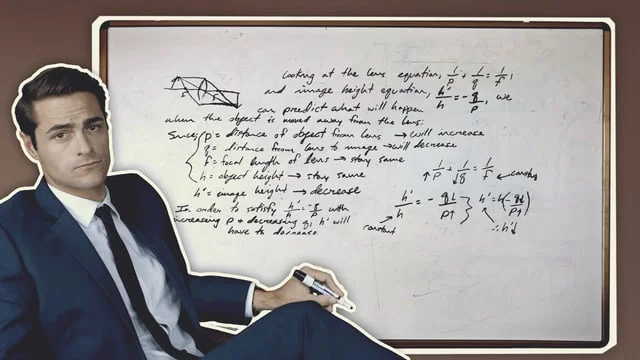 Looking at the lens equation, 1/p + 1/q = 1/f,
and image height equation, h'/h = -q/p, we
can predict what will happen
when the object is moved away from the lens:
Since p = distance of object from lens → will increase
q = distance from lens to image → will decrease
f = focal length of lens → stay same
h = object height → stay same
h' = image height → decrease
In order to satisfy h'/h = -q/p with
increasing p + decreasing q, h' will
have to decrease.
↑1/p + 1/q↓ = 1/f ← constant
h'/h = - q↓/p↑ } h' = h(-q↓/p↑)
constant
∴ h'↓